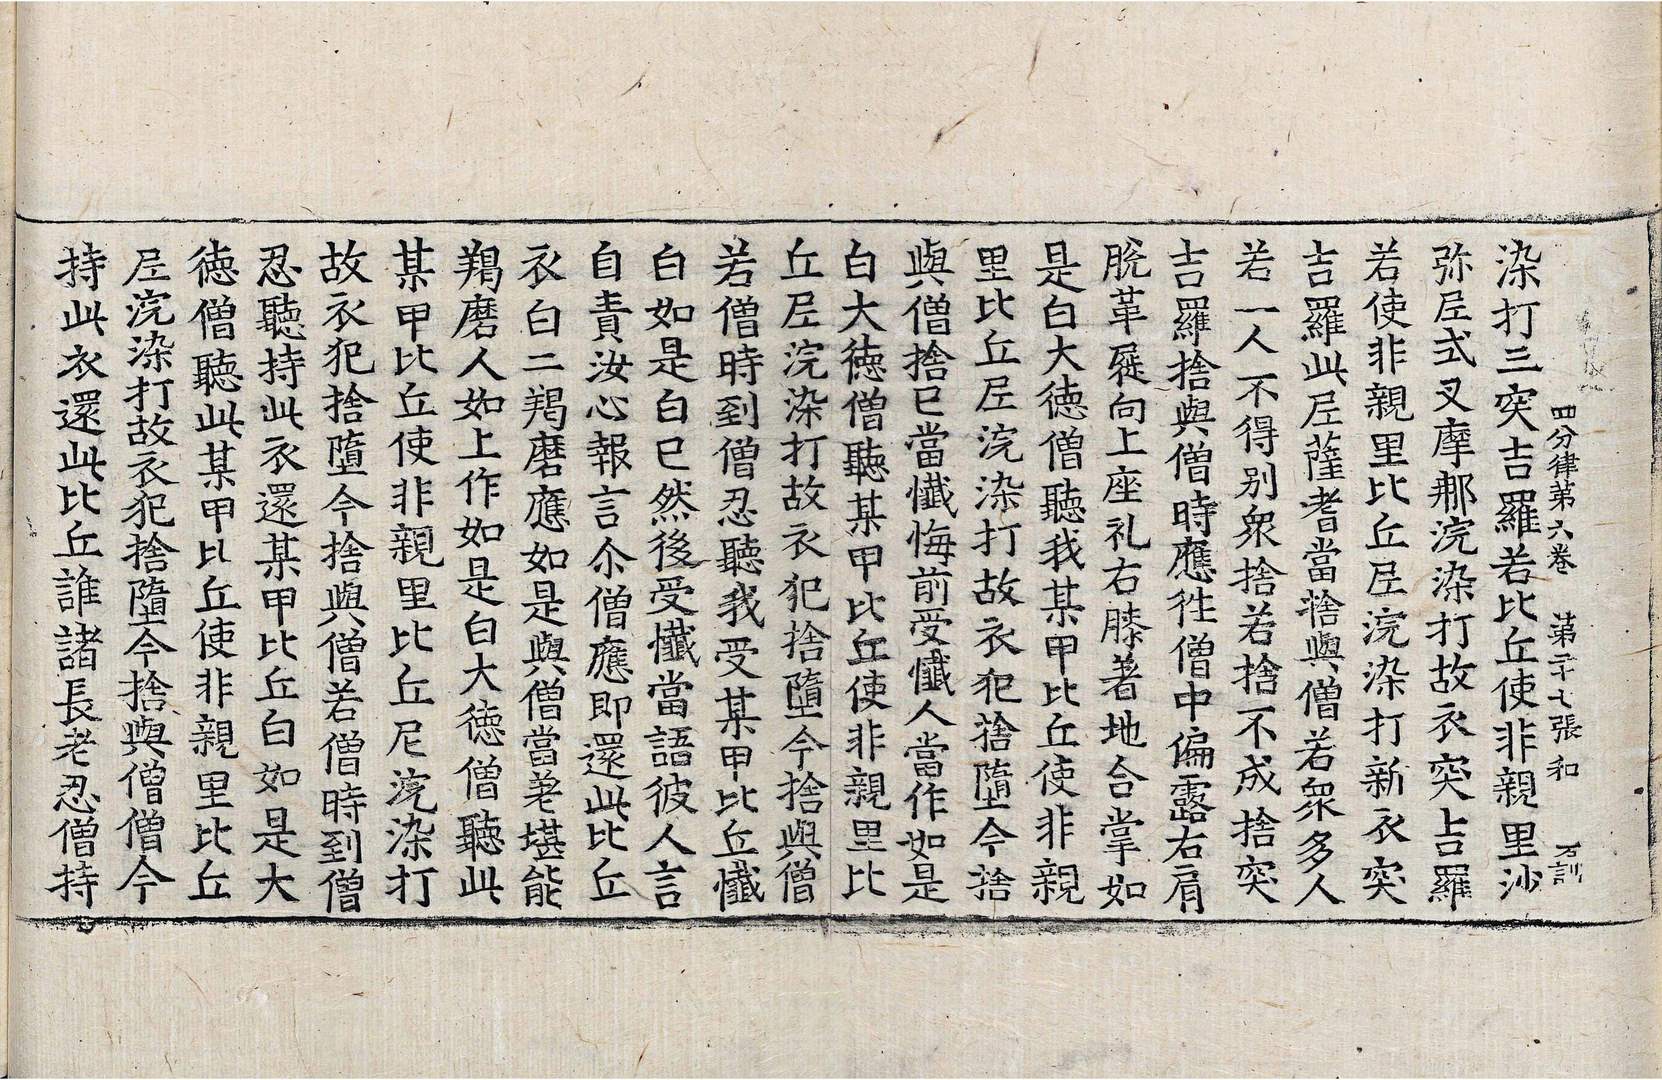 四分律第六卷　第二十七張　和　石訓
染打三突吉羅若比丘使非親里沙
弥尼式叉摩那浣染打故衣突吉羅
若使非親里比丘尼浣染打新衣突
吉羅此尼薩耆當捨與僧若衆多人
若一人不得别衆捨若捨不成捨突
吉羅捨與僧時應徃僧中偏露右肩
脫革屣向上座礼右膝著地合掌如
是白大德僧聽我某甲比丘使非親
里比丘尼浣染打故衣犯捨墮今捨
與僧捨已當懺悔前受懺人當作如是
白大德僧聽某甲比丘使非親里比
丘尼浣染打故衣犯捨墮今捨與僧
若僧時到僧忍聽我受某甲比丘懺
白如是白已然後受懺當語彼人言
自責汝心報言尒僧應即還此比丘
衣白二羯磨應如是與僧當差堪能
羯磨人如上作如是白大德僧聽此
某甲比丘使非親里比丘尼浣染打
故衣犯捨墮今捨與僧若僧時到僧
忍聽持此衣還某甲比丘白如是大
德僧聽此某甲比丘使非親里比丘
尼浣染打故衣犯捨墮今捨與僧僧今
持此衣還此比丘誰諸長老忍僧持